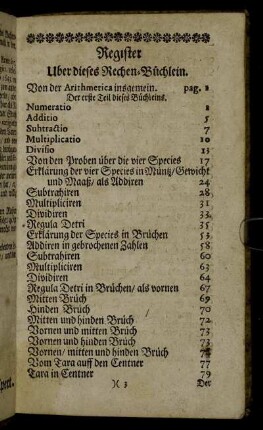 Register
Uber dieses Rechen-Büchlein.
Von der Arithmetica insgemein. pag. 1
Der erste Teil dieses Büchleins.
Numeratio 1
Additio 5
Subtractio 7
Multiplicatio 10
Divisio 13
Von den Proben über die vier Species 17
Erklärung der vier Species in Müntz/ Gewicht
und Maaß/ als Addiren 24
Subtrahiren 28
Multipliciren 31
Dividiren 33
Regula Detri 35
Erklärung der Species in Brüchen 53
Addiren in gebrochenen Zahlen 58
Subtrahiren 60
Multipliciren 63
Dividiren 64
Regula Detri in Brüchen/ als vornen 67
Mitten Brüch 69
Hinden Brüch 70
Mitten und hinden Brüch 72
Vornen und mitten Brüch 73
Vornen und hinden Brüch 73
Vornen/ mitten und hinden Brüch
Vom Tara auff den Centner 77
Tara in Centner 79
N 3 Der